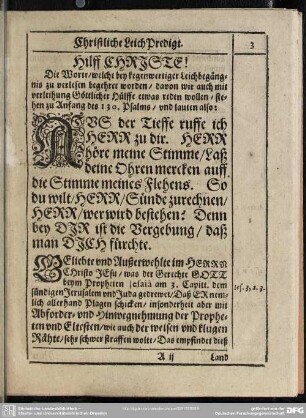 Christliche Leich Predigt.
3
Hilff CHRISTE!
Die Worte/ welche bey gegenwertiger Leichbegäng-
nis zu verlesen begehret worden/ davon wir auch mit
verleihung Göttlicher Hülffe etwas reden wollen/ ste-
hen zu Anfang des 130. Psalms/ und lauten also:
AUS der Tieffe ruffe ich
HERR zu dir. HERR
höre meine Stimme/ Laß
deine Ohren mercken auff
die Stimme meines Flehens. So
du wilt/ HERR/ Sünde zurechnen/
HERR/ wer wird bestehen? Denn
bey DIR ist die Vergebung/ daß
man DICH fürchte.
GEliebte und Außerwehlte im HERRN
Christo JEsu/ was der Gerechte GOTT
beym Propheten Jesaiâ am 3. Capitt. dem
Jes. 3. 2. 3.
sündigen Jerusalem und Juda gedrewet/ Daß ER nem-
lich allerhand Plagen schicken/ insonderheit aber mit
Abforder- und Hinwegnehmung der Prophe-
ten und Eltesten/ wie auch der weisen und klugen
Rähte/ sehr schwer straffen wolte/ Das empfindet dieß
A ij
Land